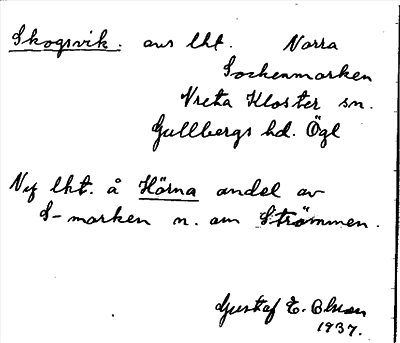 Skogsvik. avs lht. Norra
Sockenmarken
Vreta Kloster sn.
Gullbergs hd. Ögl
Ny lht. å Hörna andel av
S-marken n. om Strömmen.
Gustaf E. Olson
1937.